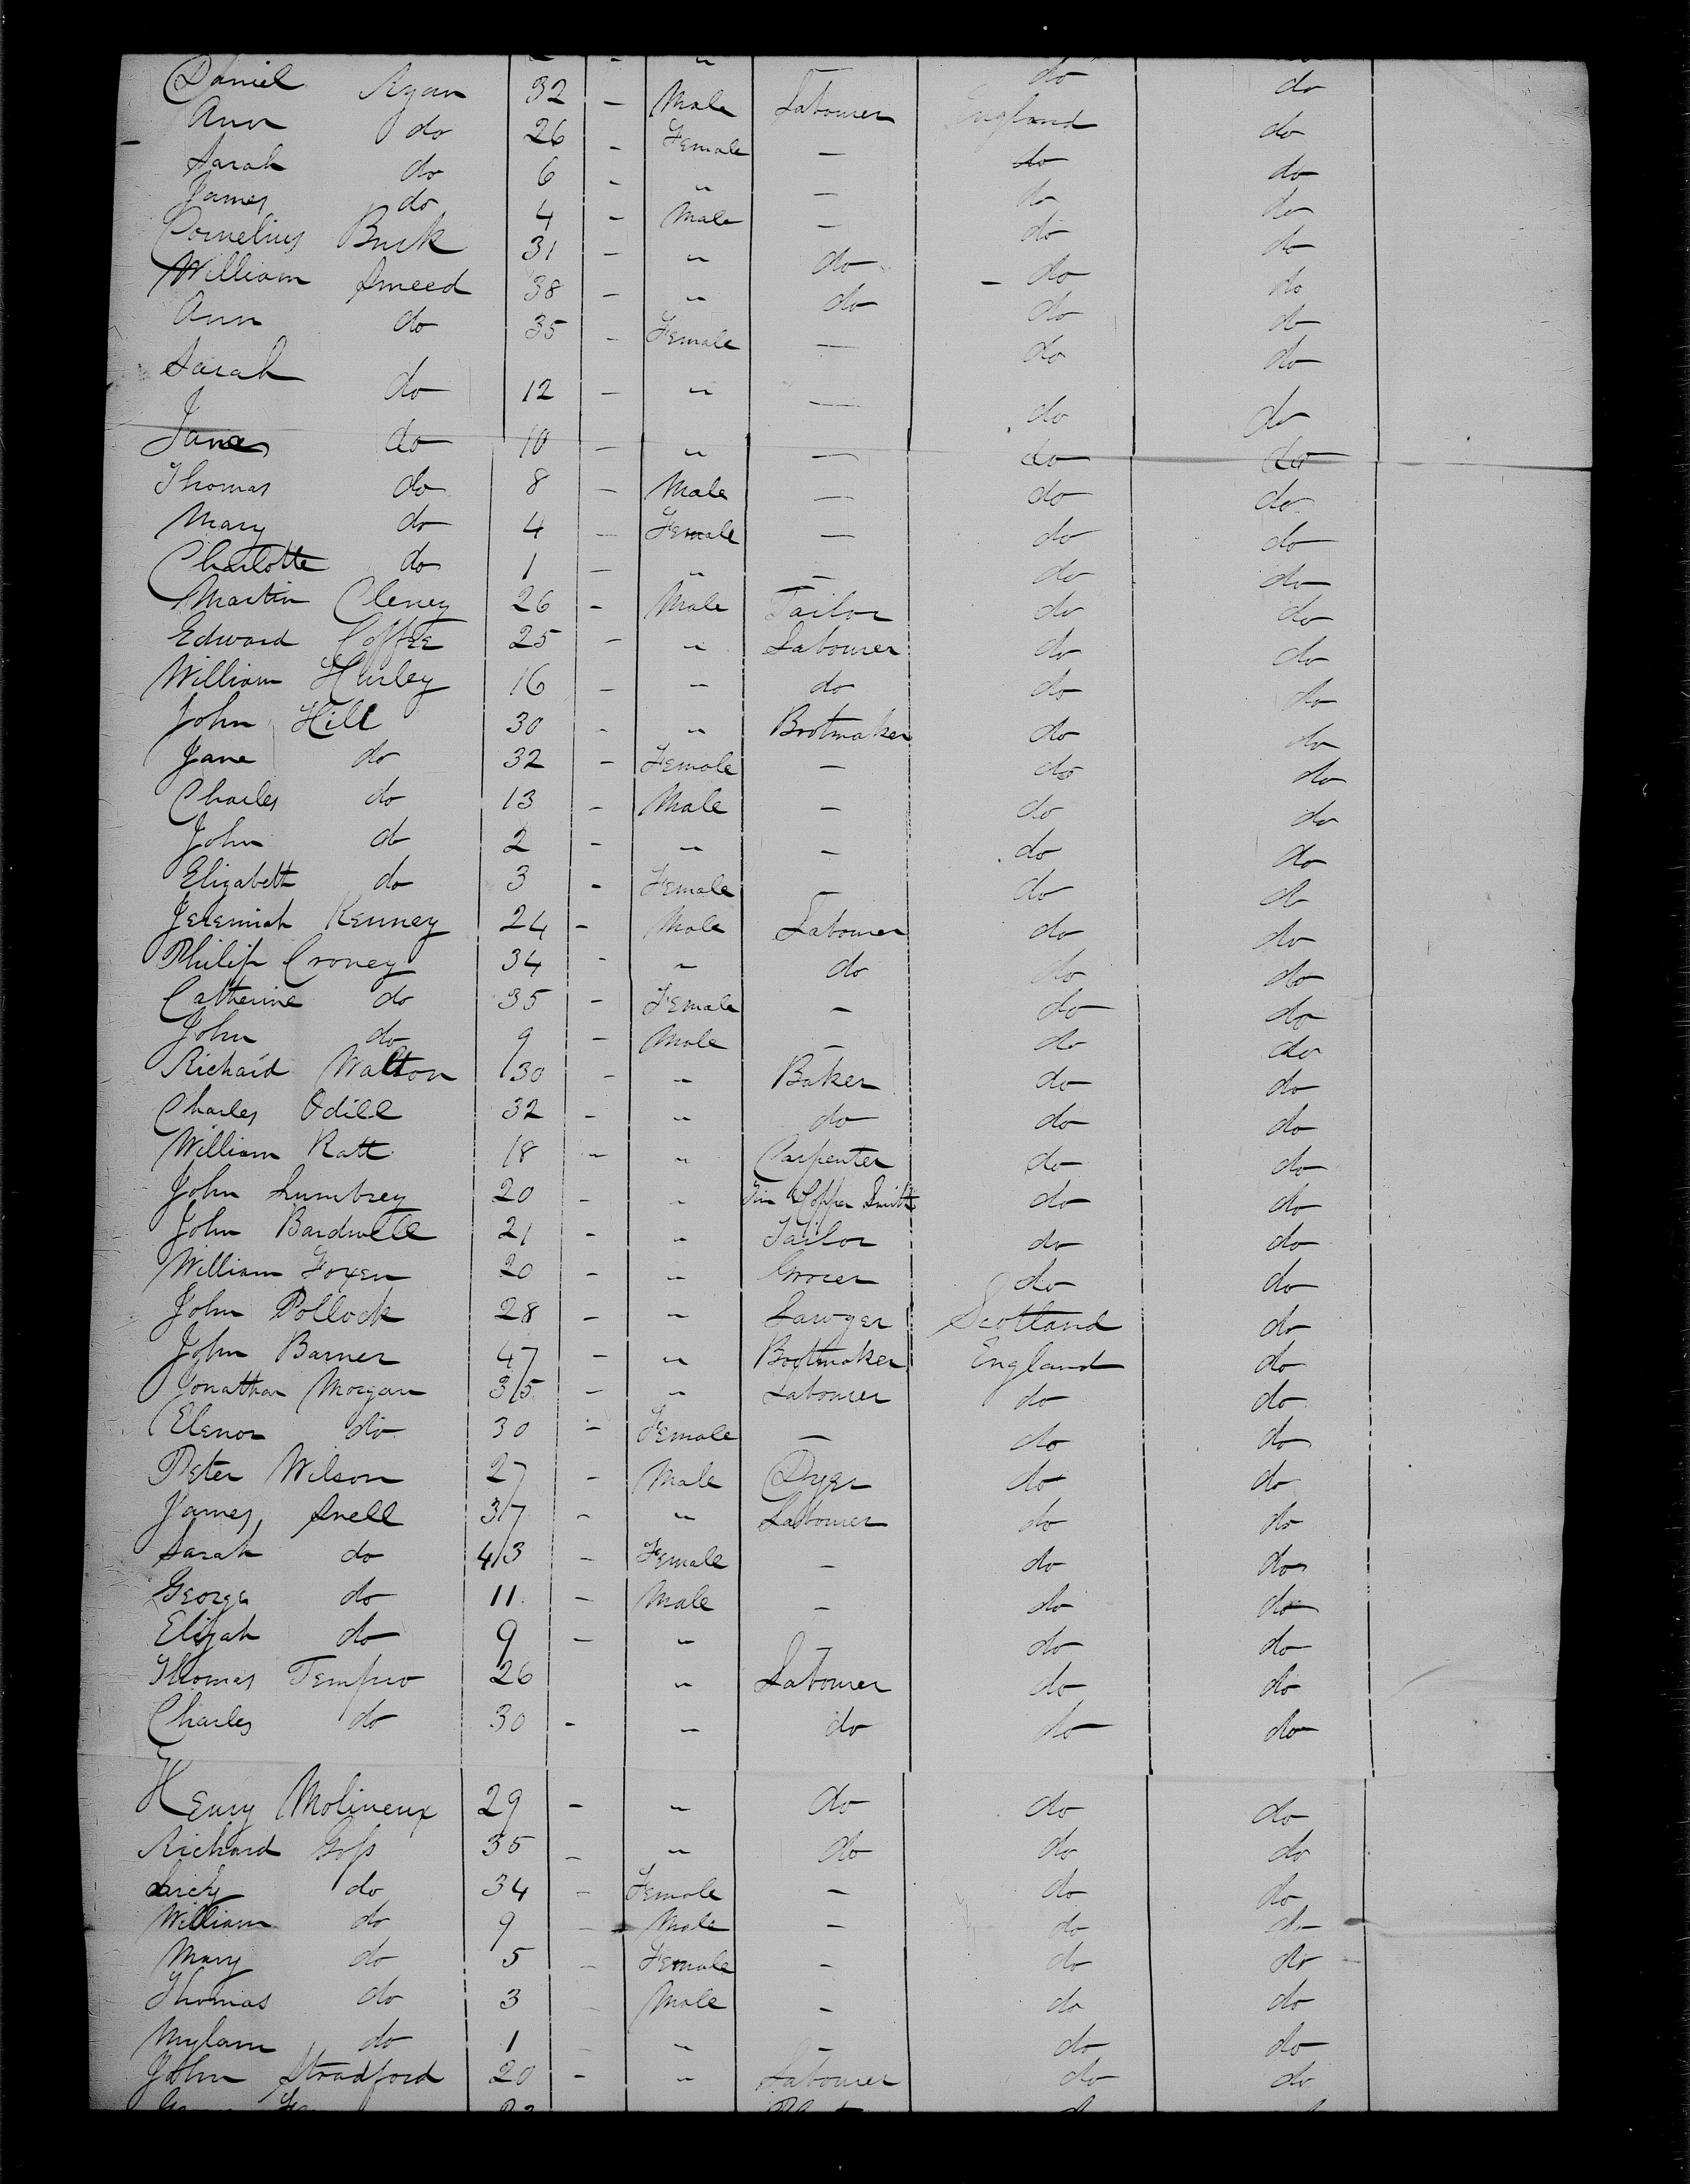 Daniel Ryan 32 - Male Labourer England do
Ann do 26 - Female — do do
Sarah do 6 - " — do do
James do 4 - Male — do do
Cornelius Buck 31 - " do do do
William Smeed 38 - " do do do
Ann do 35 - Female — do do
Sarah do 12 - " — do do
Jane do 10 - " — do do
Thomas do 8 - Male — do do
Mary do 4 - Female — do do
Charlotte do 1 - " — do do
Martin Cleney 26 - Male Tailor do do
Edward Coffee 25 - " Labourer do do
William Hurley 16 - " do do do
John Hill 30 - " Bootmaker do do
Jane do 32 - Female — do do
Charles do 13 - Male — do do
John do 2 - " — do do
Elizabeth do 3 - Female — do do
Jeremiah Kenney 24 - Male Labourer do do
Philip Croney 34 - " do do do
Catherine do 35 - Female — do do
John do 9 - Male — do do
Richard Walton 30 - " Baker do do
Charles Odill 32 - " do do do
William Ratt 18 - " Carpenter do do
John Lumbrey 20 - " Tin & Copper Smith do do
John Bardwell 21 - " Tailor do do
William Foxen 20 - " Grocer do do
John Pollock 28 - " Sawyer Scotland do
John Barner 47 - " Bootmaker England do
Jonathan Morgan 35 - " Labourer do do
Elenor do 30 - Female — do do
Peter Wilson 27 - Male Dyer do do
James Snell 37 - " Labourer do do
Sarah do 43 - Female — do do
George do 11 - Male — do do
Elijah do 9 - " — do do
Thomas Tempro 26 " Labourer do do
Charles do 30 - " do do do
Henry Molineux 29 - " do do do
Richard Goss 35 - " do do do
do 34 - Female — do do
William do 9 - Male — do do
Mary do 5 - Female — do do
Thomas do 3 - Male — do do
do 1 - " — do do
John Stradford 20 - " Labourer do do